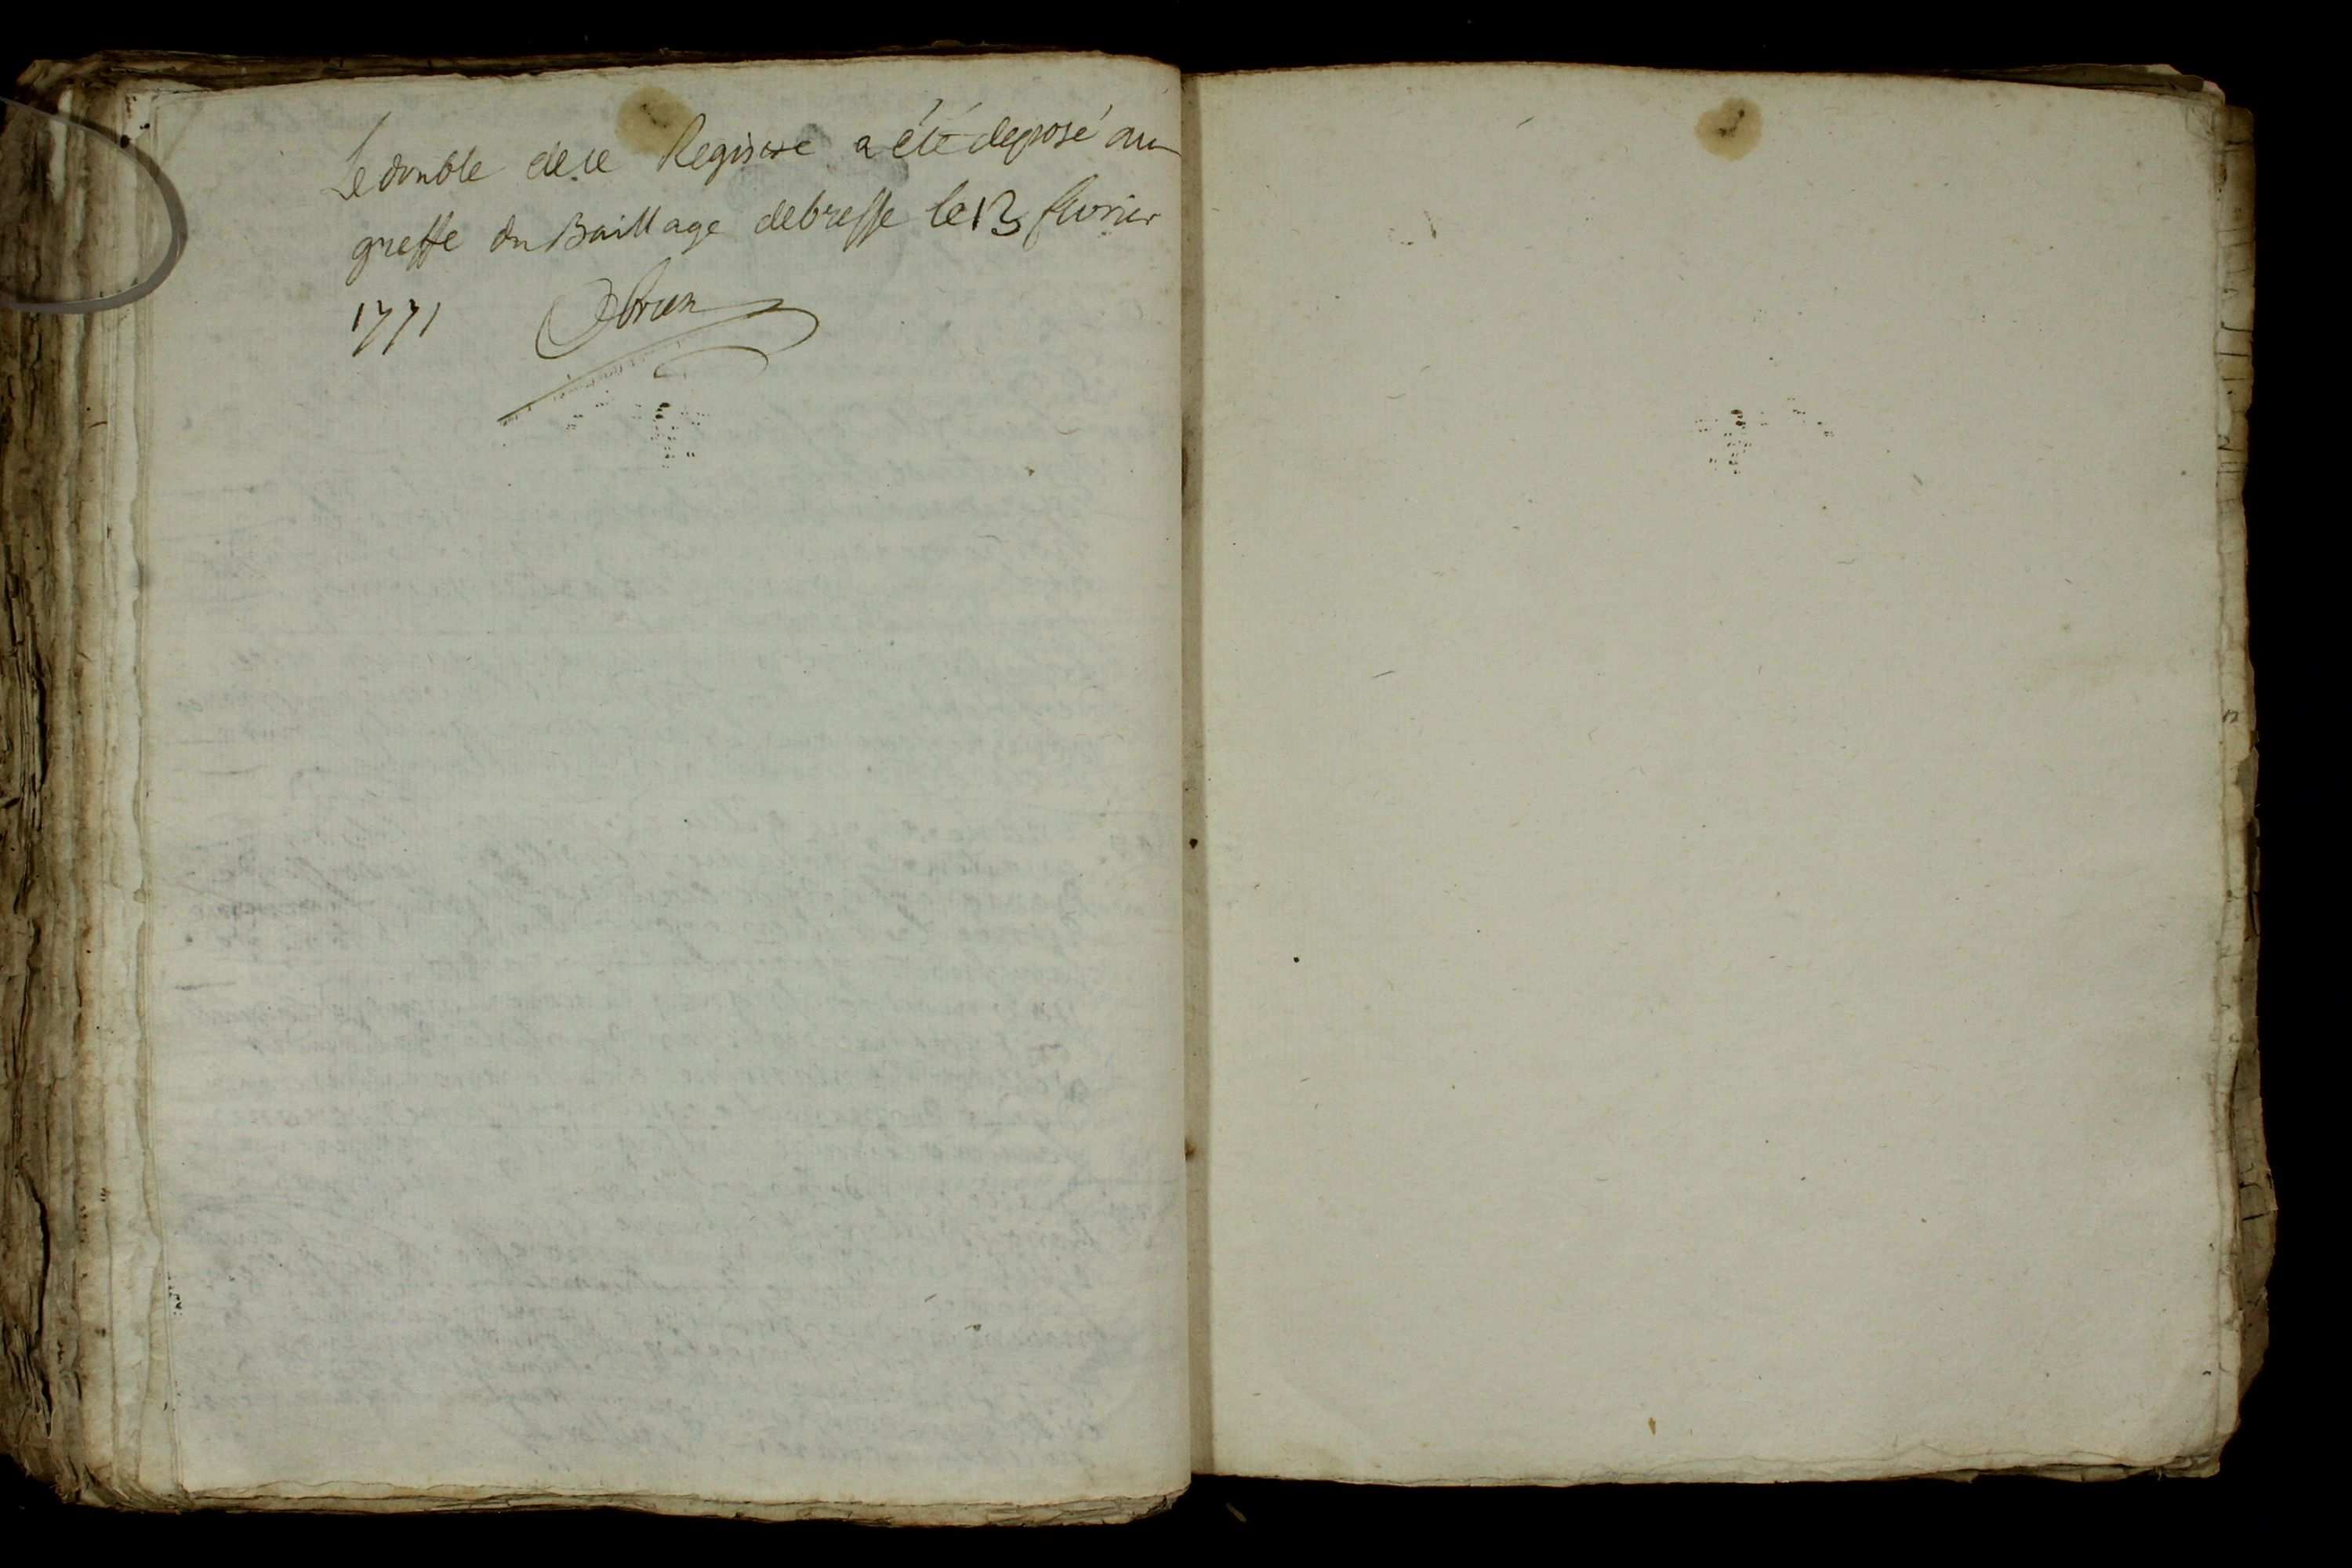 Le double de ce Registre a été deposé au
greffe du Baillage de bresse le 13 fevrier
1771